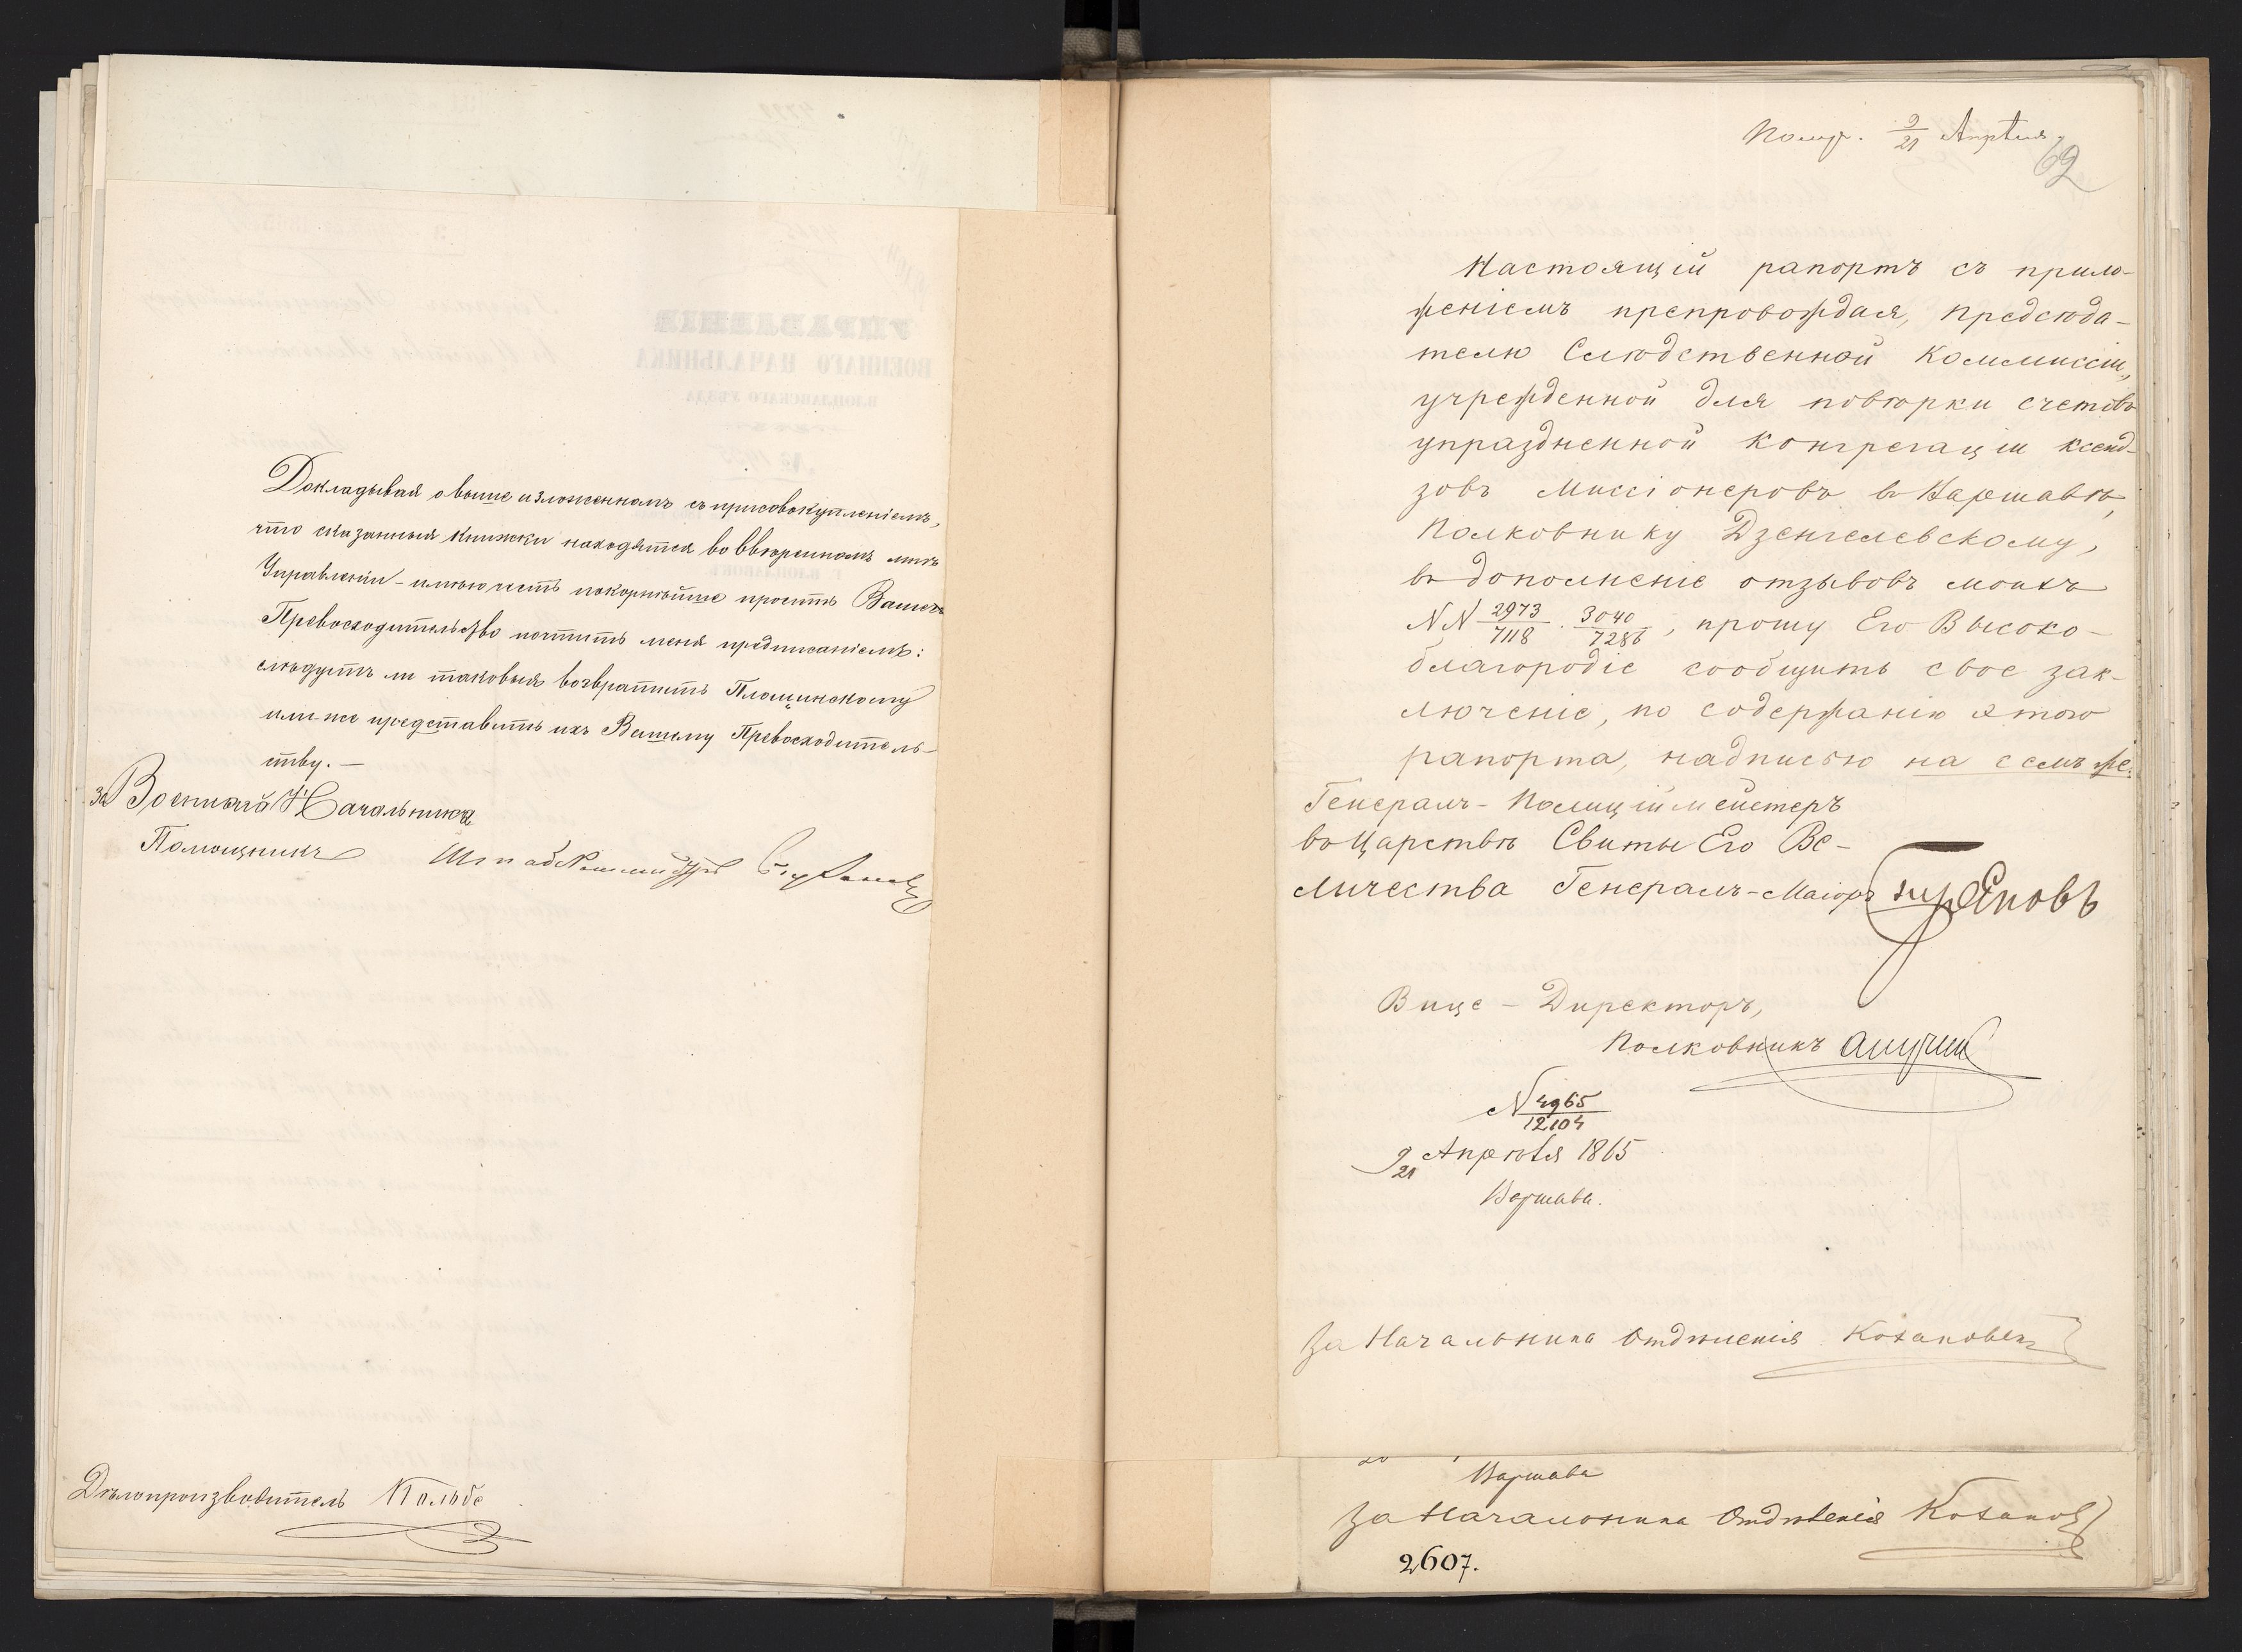 Докладывая о выше изложенномъ съ присовокупленіемъ,
что сказанныя книжки находятся во ввѣренномъ мнѣ
Управленіи – имѣю честь покорнѣйше просить Ваше
Превосходительство почтить меня предписаніемъ:
слѣдуетъ ли таковыя возвратить Площинскому
или-же представить ихъ Вашему Превосходитель-
ству. —
За Военнаго Начальника
Помощникъ
Дѣлопроизводитель
Получ. 9/21 Апрѣля
62
Настоящій рапортъ съ прило-
женіемъ препровождая, Предсѣда-
телю Слѣдственной Коммиссіи,
учрежденной для повѣрки счетовъ
упраздненной Конгрегаціи ксенд-
зовъ Миссіонеровъ въ Варшавѣ,
Полковнику Дзенгелевскому,
въ дополненіе отзывовъ моихъ
NN 2973/7118 . 3040/7286, прошу Его Высоко-
благородіе сообщить свое зак-
люченіе, по содержанію этого
рапорта, надписью на семъ же.
Генералъ-Полиціймейстеръ
въ Царствѣ Свиты Его Ве-
личества Генералъ-Маіоръ Треповъ
Вице – Директоръ,
Полковникъ Анучин
N 4965/12104
9/21 Апрѣля 1865
Варшава.
За Начальника Отдѣленія
Варшава
За Начальника Отдѣленія
2607.
УПРАВЛЕНІЕ
ВОЕННАГО НАЧАЛЬНИКА
ВЛОЦЛАВСКАГО УѢЗДА